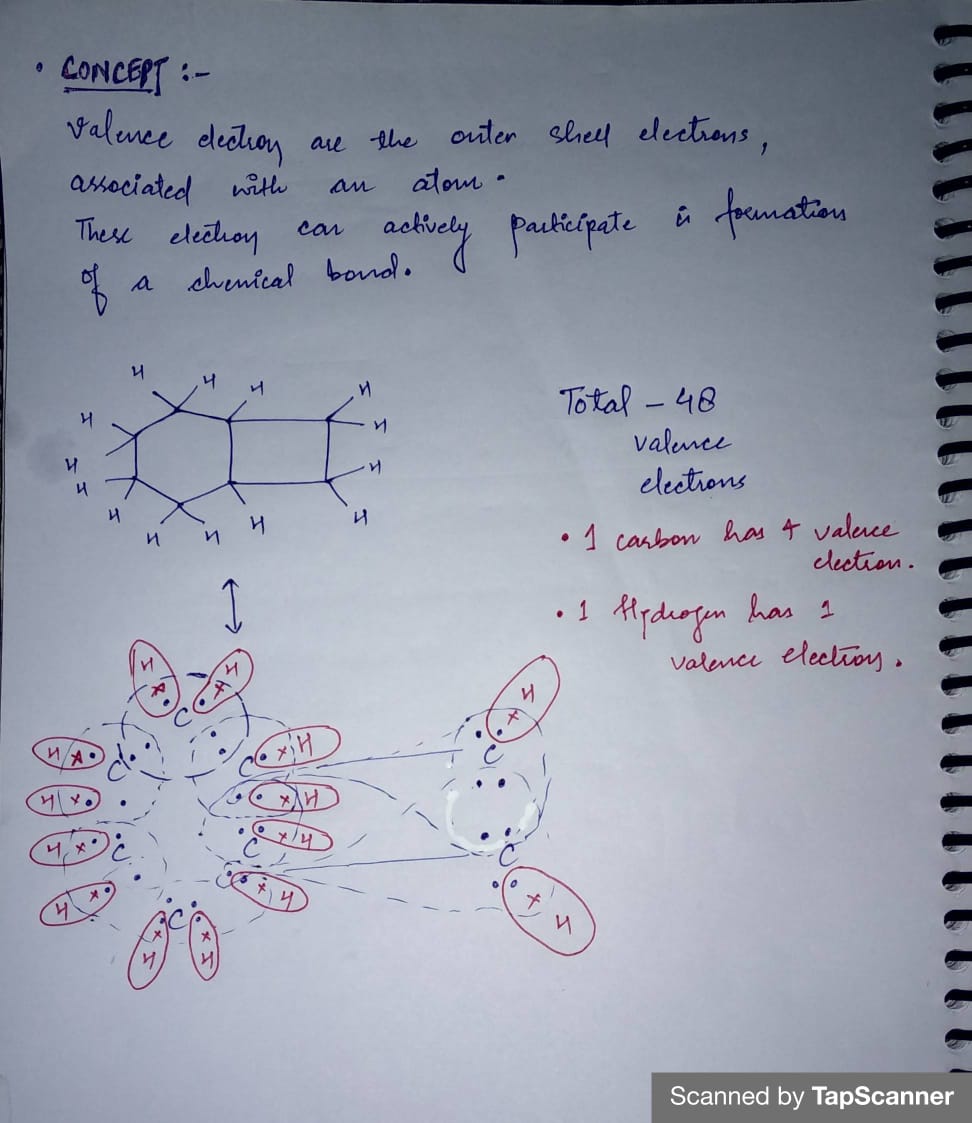 • CONCEPT :-
Valence electron are the outer shell electrons,
associated with an atom.
These electron can actively participate in formation
of a chemical bond.
H H H H
H H
H H
H
H H H H H
Total - 48
valence
electrons
• 1 carbon has 4 valence
electron.
• 1 Hydrogen has 1
valence electrons.
H H H
C
H x C C x H C
H x x H
H x C C x H C
H x x H
C x
x x H
H H
Scanned by TapScanner